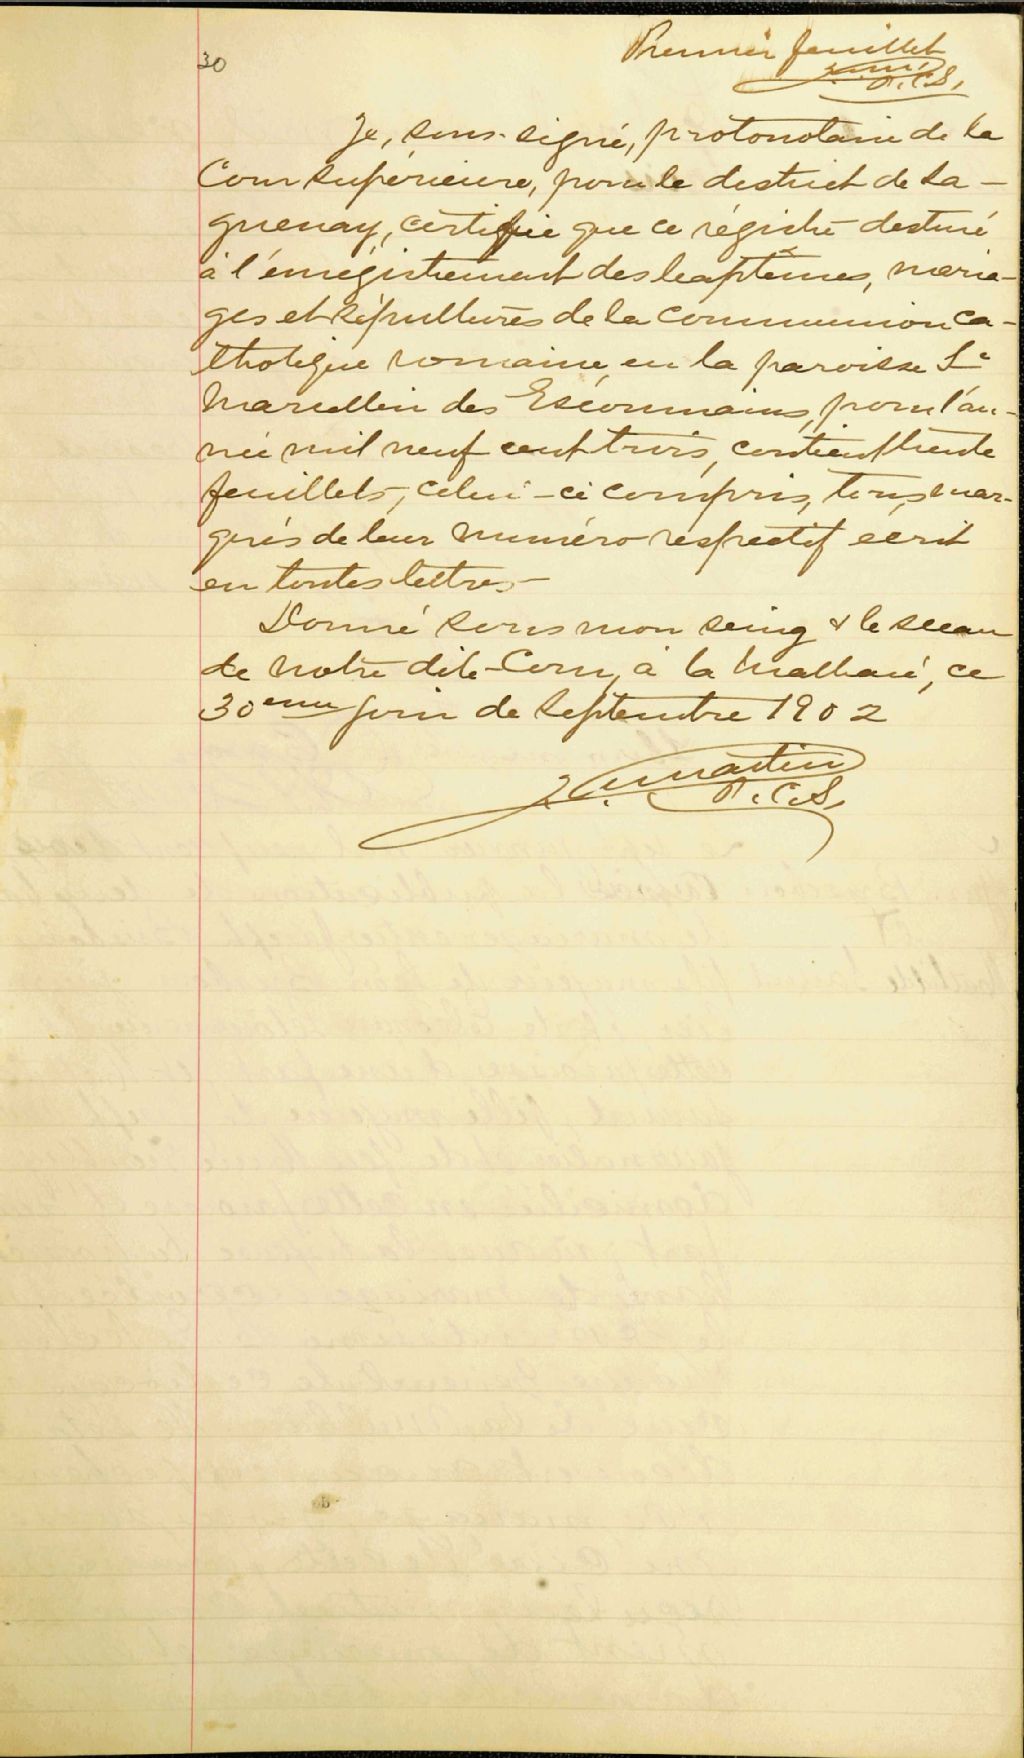 30
Premier feuillet
P.C.S.
Je, sous-signé, protonotaire de la
Cour Supérieure, pour le district de Sa-
guenay, certifie que ce régistre destiné
à l'enrégistrement des baptêmes, maria-
ges et sépultures de la communion ca-
tholique romaine, en la paroisse St
Marcellin des Escoumains, pour l'an-
née mil neuf cent trois, contient trente
feuillets, celui-ci compris, tous mar-
qués de leur numéro respectif écrit
en toutes lettres-
Donné sous mon seing & le sceau
de notre dite Cour, à la Malbaie, ce
30eme jour de Septembre 1902
Martin
P.C.S.